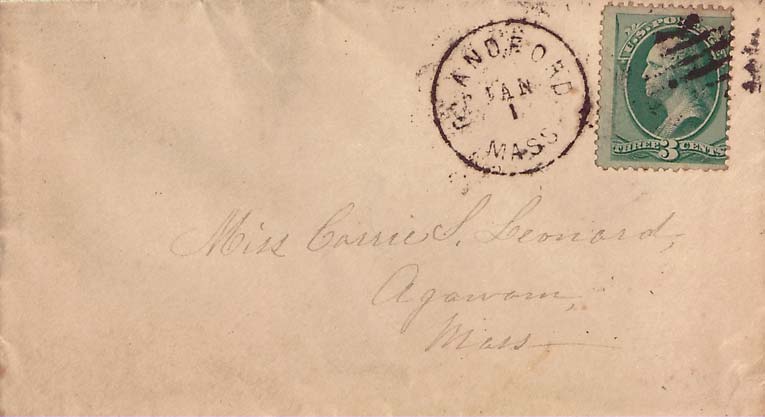 BLANDFORD
JAN
1
MASS
U.S. POSTAGE
THREE 3 CENTS
Miss Carrie S. Leonard,
Agawam,
Mass